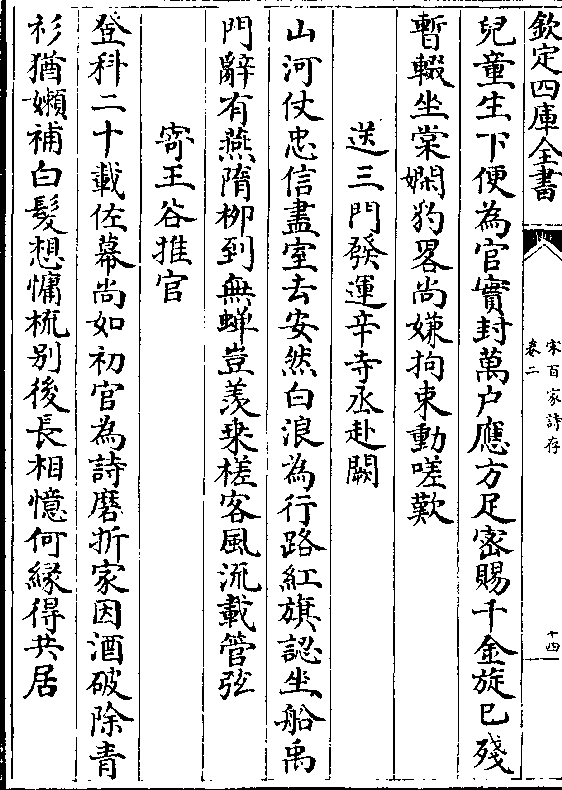 欽定四庫全書
宋百家詩存
卷二
十四
兒童生下便為官實封萬户應方足密賜千金旋已殘
暫輟坐棠嫻豹畧尚嫌拘束動嗟歎
送三門發運辛寺丞赴闕
山河仗忠信盡室去安然白浪為行路紅旗認坐船禹
門辭有燕隋柳到無蟬豈羨乗槎客風流載管弦
寄王谷推官
登科二十載佐幕尚如初官為詩磨折家因酒破除青
衫猶嬾補白髮想慵梳别後長相憶何緣得共居